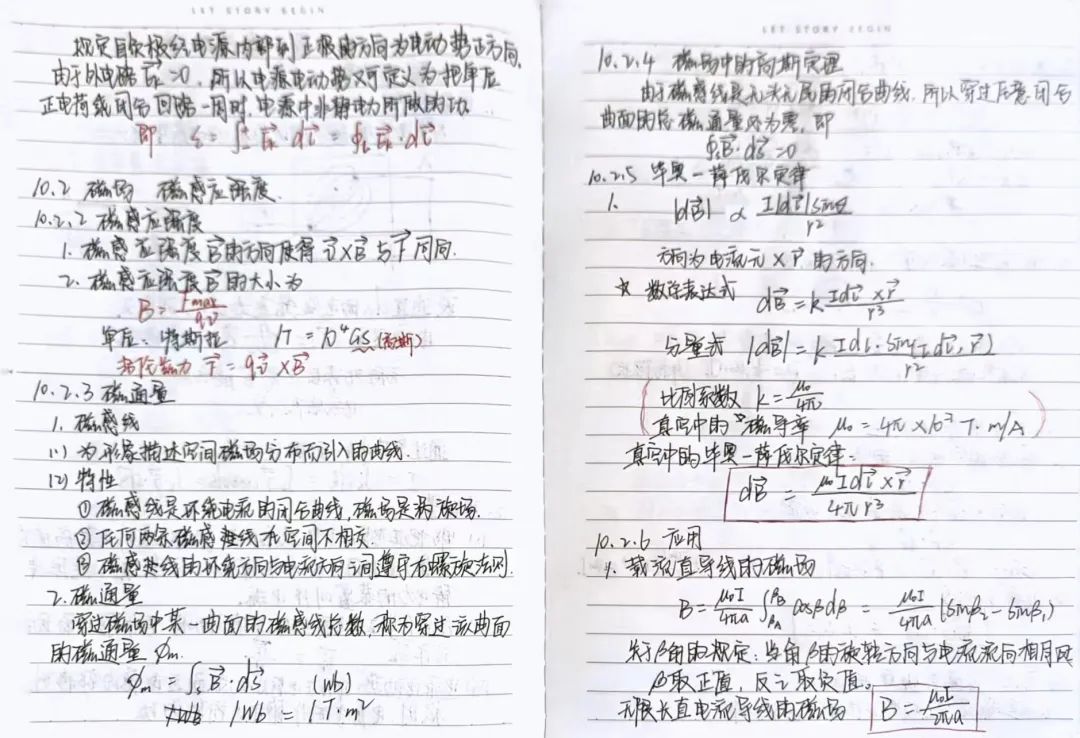 LET STORY BEGIN
规定自负极经电源内部到正极的方向为电动势正方向.
由于外电路 E⃗k=0, 所以电源电动势又可定义为把单位
正电荷绕闭合回路一周时, 电源中非静电力所做的功.
即 ε = ∫₋⁺ E⃗k·dl⃗ = ∮L E⃗k·dl⃗
10.2 磁场 磁感应强度.
10.2.2 磁感应强度
1. 磁感应强度B⃗的方向使得 v⃗×B⃗ 与F⃗同向.
2. 磁感应强度B⃗的大小为
B = Fmax/qv
单位: 特斯拉 1T = 10⁴Gs (高斯)
洛伦兹力 F⃗ = qv⃗×B⃗
10.2.3 磁通量
1. 磁感线
(1) 为形象描述空间磁场分布而引入的曲线.
(2) 特性
① 磁感线是环绕电流的闭合曲线, 磁场是涡旋场.
② 任何两条磁感线在空间不相交.
③ 磁感线的环绕方向与电流方向之间遵守右螺旋法则.
2. 磁通量
穿过磁场中某一曲面的磁感线条数, 称为穿过该曲面
的磁通量 Φm.
Φm = ∫s B⃗·dS⃗ (Wb)
1Wb = 1T·m²
LET STORY BEGIN
10.2.4 磁场中的高斯定理
由于磁感线是无头无尾的闭合曲线, 所以穿过任意闭合
曲面的总磁通量必为零, 即
∮s B⃗·dS⃗ = 0
10.2.5 毕奥-萨伐尔定律
1. |dB⃗| ∝ I|dl⃗|sinθ/r²
方向为电流元×r⃗的方向.
☆ 数学表达式 dB⃗ = k Idl⃗×r⃗/r³
分量式 |dB⃗| = k Idl·sin(Idl⃗, r⃗)/r²
比例系数 k = μ₀/4π
真空中的磁导率 μ₀ = 4π×10⁻⁷ T·m/A
真空中的毕奥-萨伐尔定律.
dB⃗ = μ₀Idl⃗×r⃗/4πr³
10.2.6 应用
1. 载流直导线的磁场
B = μ₀I/4πa ∫ cosβdβ = μ₀I/4πa (sinβ₂ - sinβ₁)
关于β角的规定: 当角β的旋转方向与电流流向相同时
β取正值, 反之取负值.
无限长直电流导线的磁场 B = μ₀I/2πa